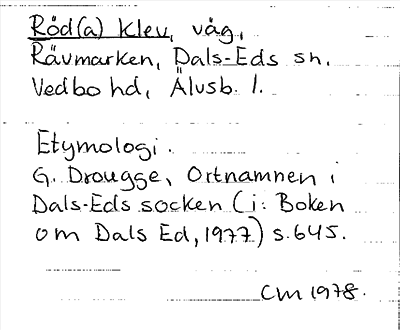 Röd(a) Klev, våg,
Rävmarken, Dals-Eds sn,
Vedbo hd, Älvsb. l.
Etymologi.
G. Drougge, Ortnamnen i
Dals-Eds socken (i: Boken
om Dals Ed, 1977) s. 645.
CM 1978.